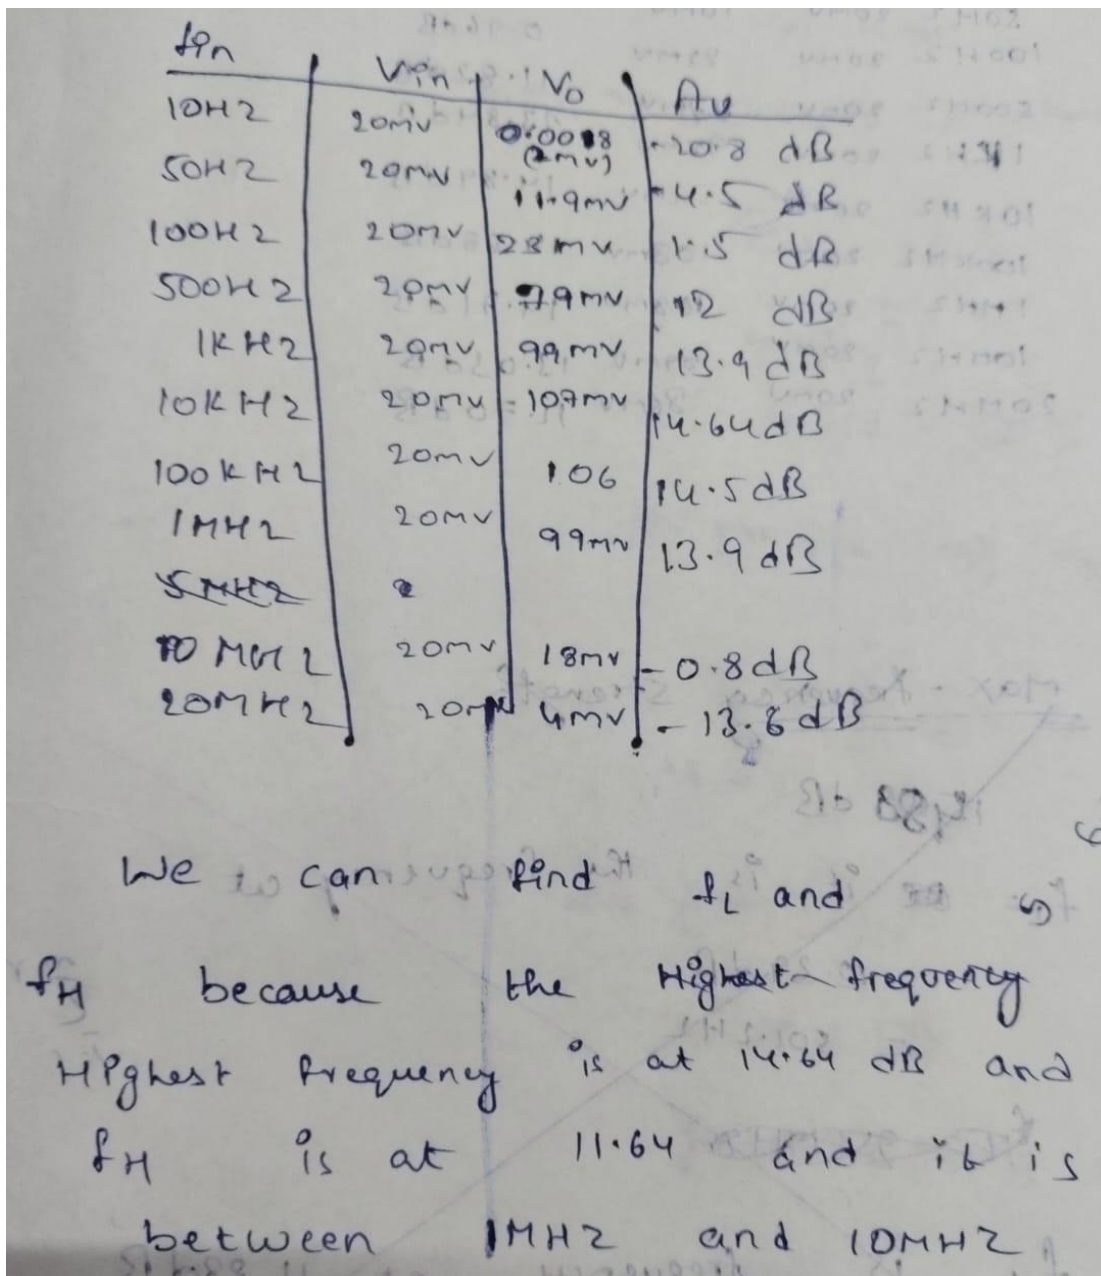 fin Vin Vo Av
10HZ 20mv 0.0018 (2mv) -20.8 dB
50HZ 20mv 11.9mv -4.5 dB
100HZ 20mv 23mv 1.5 dB
500HZ 20mv 79mv 12 dB
1KHZ 20mv 99mv 13.9 dB
10KHZ 20mv 107mv 14.64dB
100KHZ 20mv 106 14.5dB
1MHZ 20mv 99mv 13.9dB
5MHZ
10MHZ 20mv 18mv -0.8dB
20MHZ 20mv 4mv -13.8dB
We can find fL and
fH because the Highest frequency
Highest frequency is at 14.64 dB and
fH is at 11.64 and it is
between 1MHZ and 10MHZ